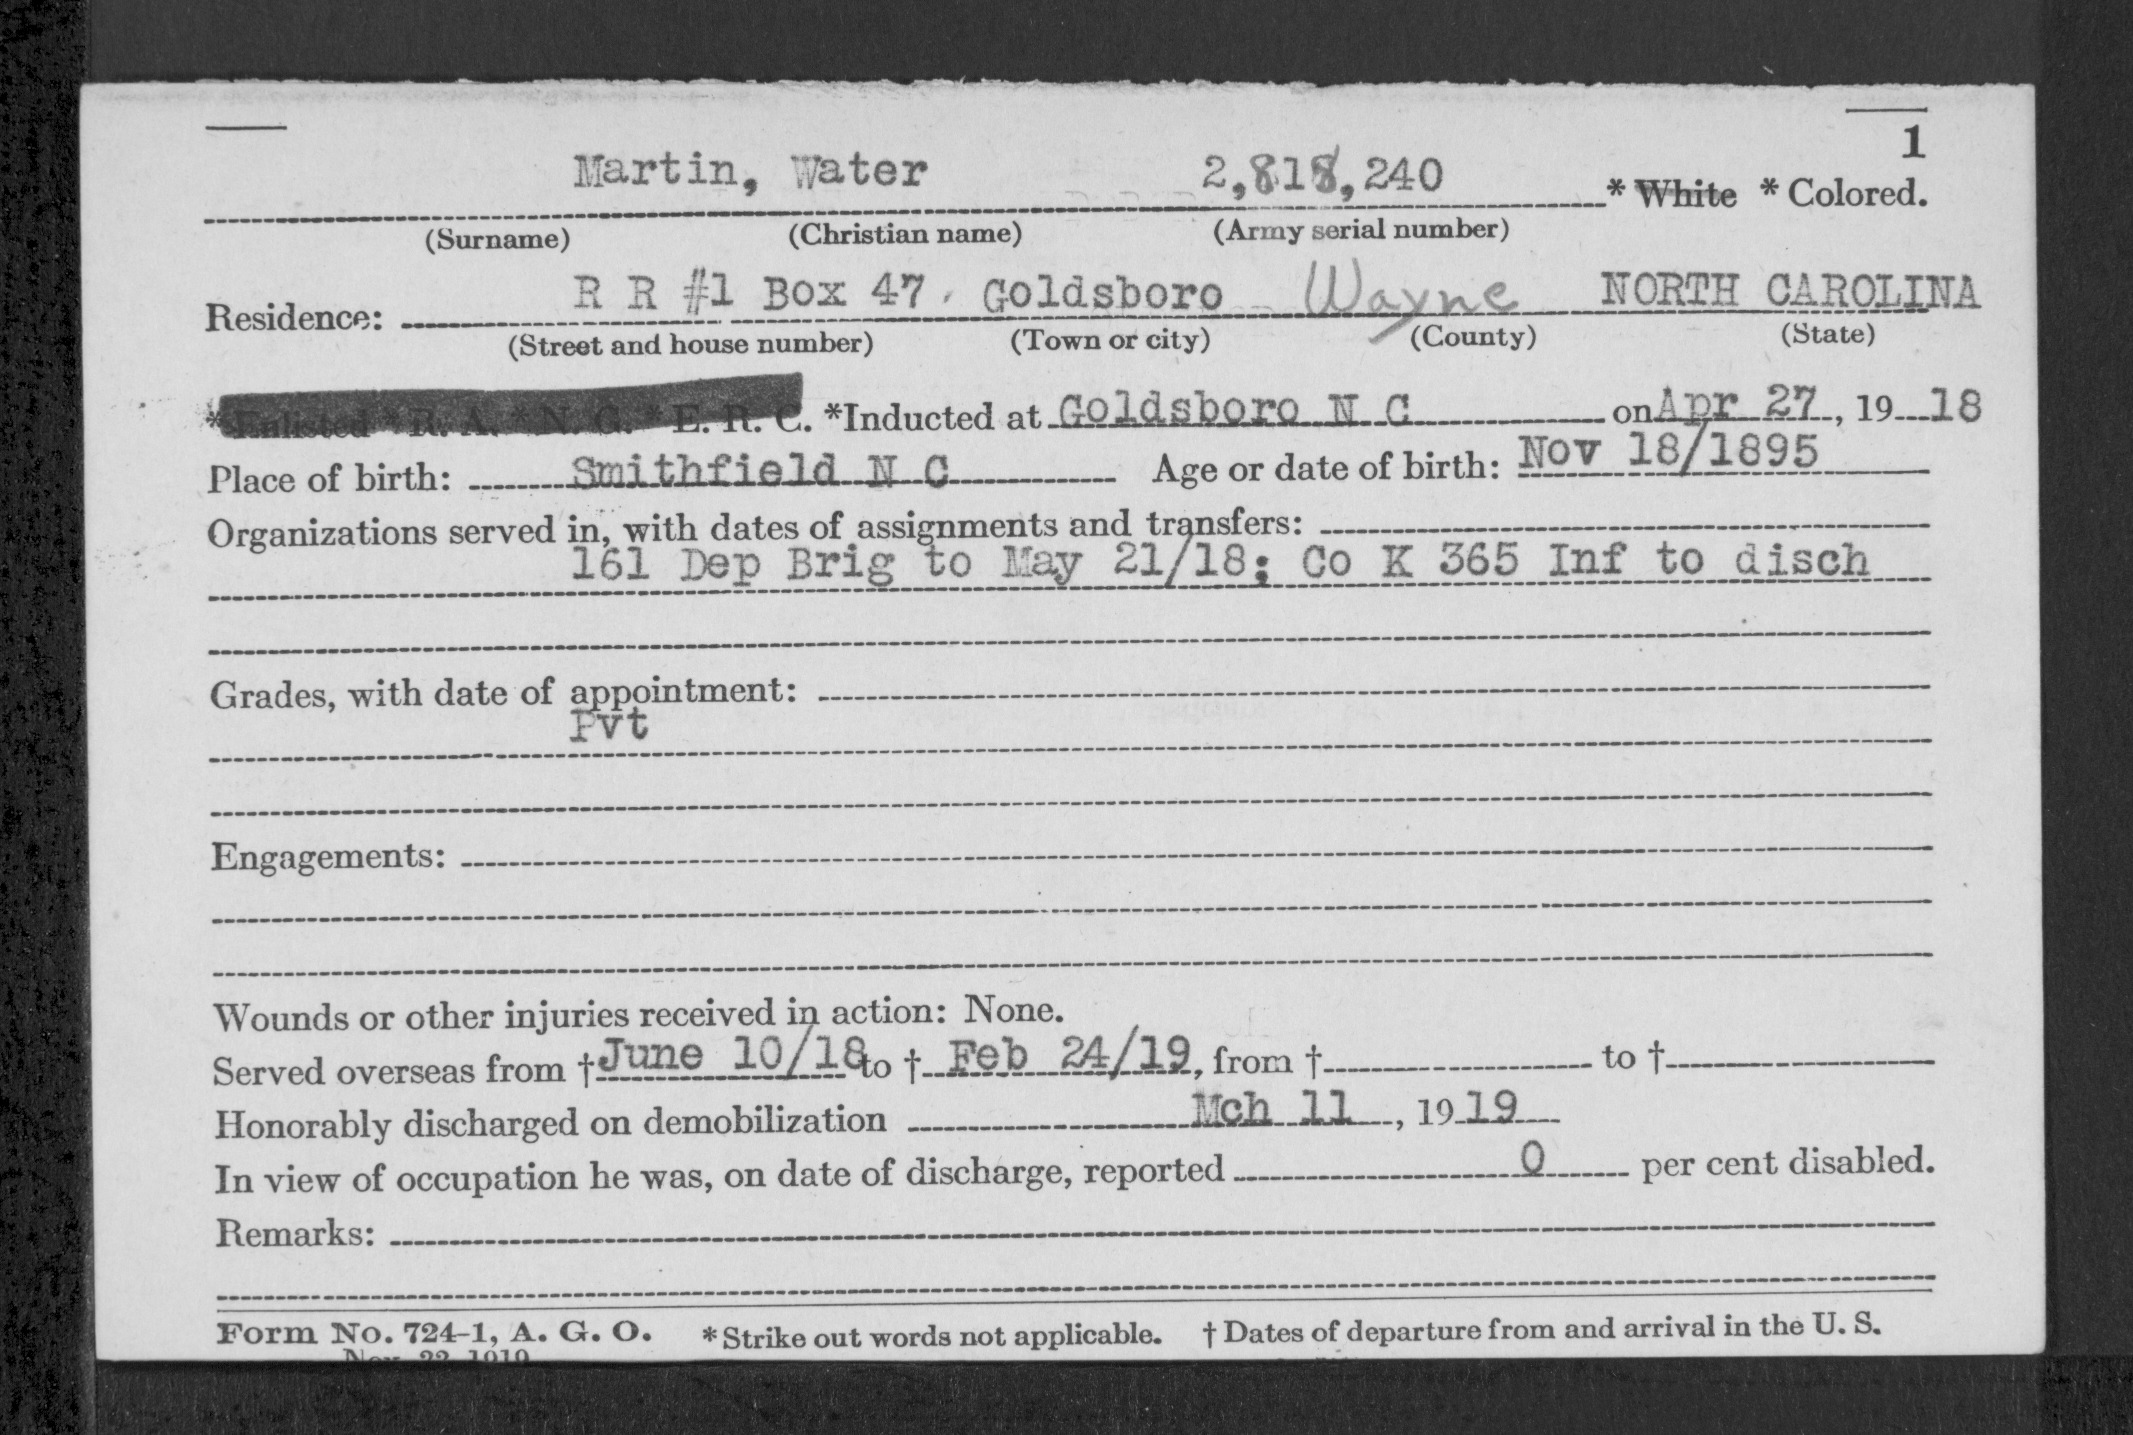 1
Martin, Water 2,818,240 * White * Colored.
(Surname) (Christian name) (Army serial number)
Residence: R R #1 Box 47, Goldsboro Wayne NORTH CAROLINA
(Street and house number) (Town or city) (County) (State)
* Enlisted * R. A. * N. G. * E. R. C. *Inducted at Goldsboro N C on Apr 27, 19 18
Place of birth: Smithfield N C Age or date of birth: Nov 18/1895
Organizations served in, with dates of assignments and transfers:
161 Dep Brig to May 21/18; Co K 365 Inf to disch
Grades, with date of appointment:
Pvt
Engagements:
Wounds or other injuries received in action: None.
Served overseas from † June 10/18 to † Feb 24/19, from † to †
Honorably discharged on demobilization Mch 11, 19 19
In view of occupation he was, on date of discharge, reported 0 per cent disabled.
Remarks:
Form No. 724-1, A. G. O. * Strike out words not applicable. † Dates of departure from and arrival in the U. S.
Nov. 22, 1919